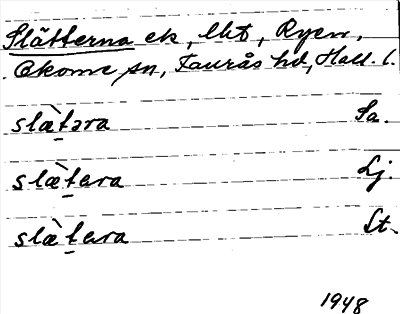 Slätterna ek, lht, Ryen,
Okome sn, Faurås hd, Hall. l.
slæ̀təra Sa.
slæ̀tara Lj.
slæ̀tɐra St.
1948